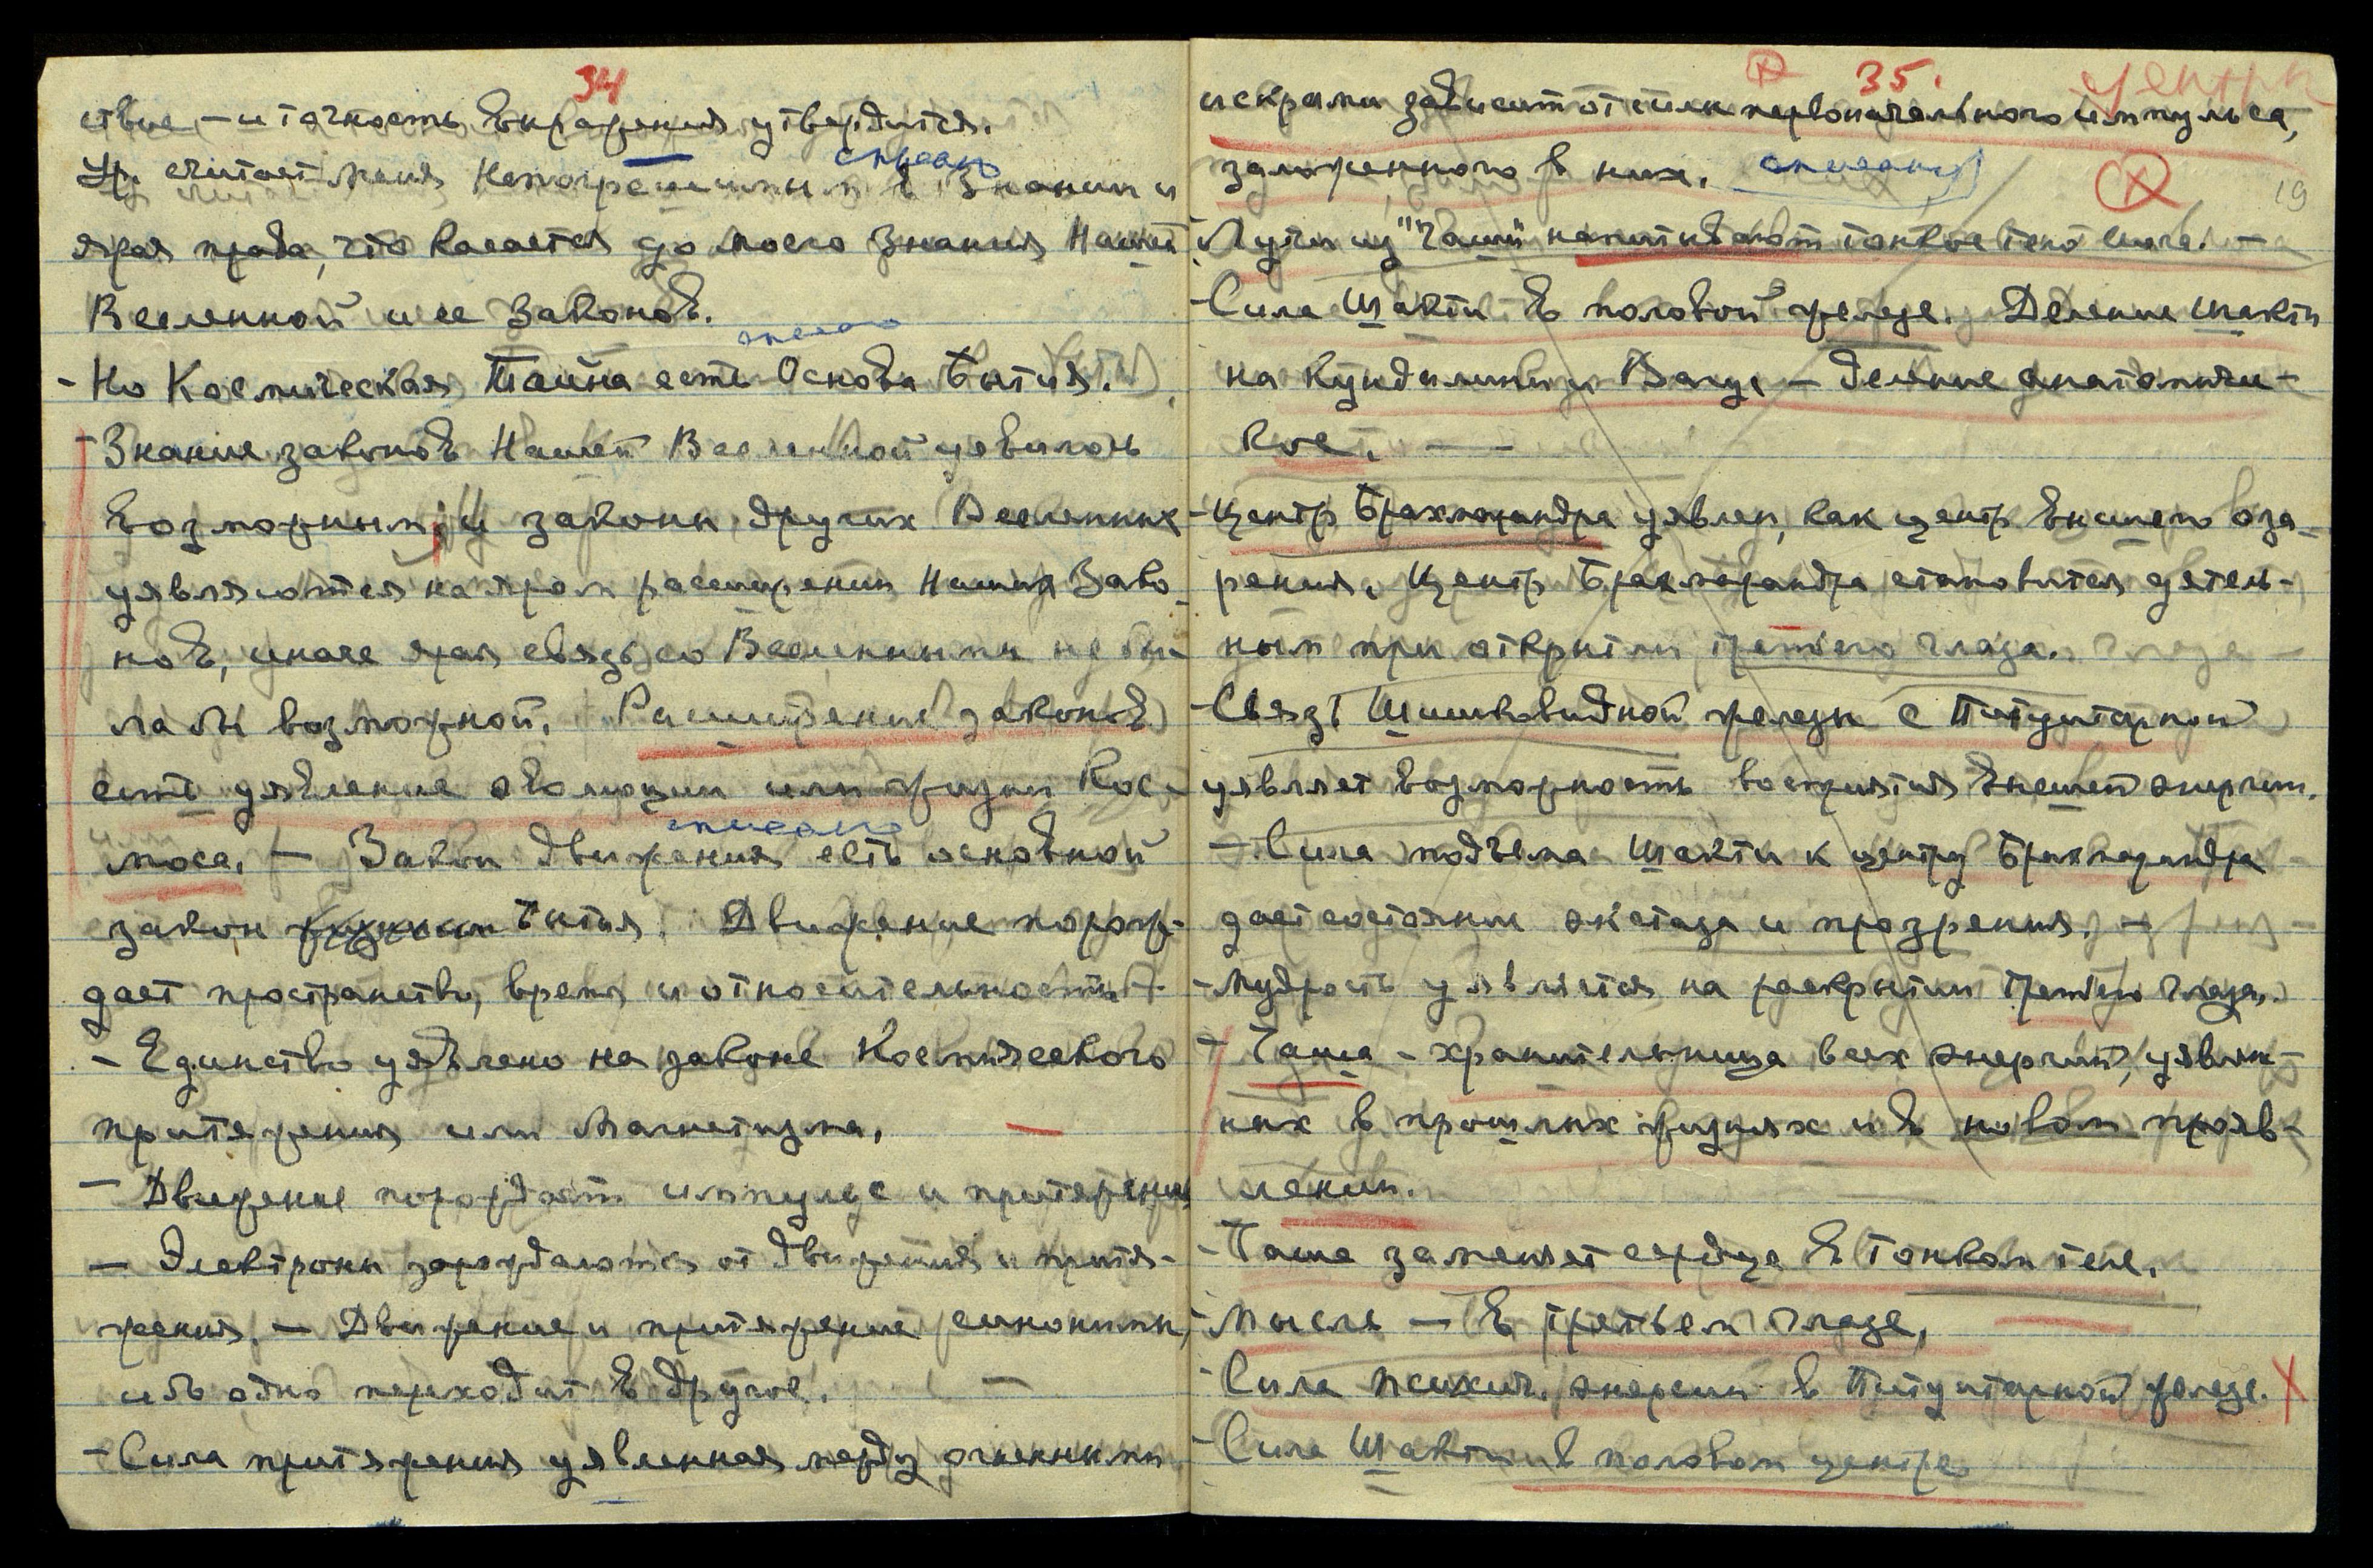 34
ствие – и точность выражения утвердится.
списано
Ур. считает меня непогрешимым в знании и
ярая права, что касается до моего знания Нашей
Вселенной и ее Законов.
списано
- Но Космическая Тайна есть Основа Бытия.
- Знание законов Нашей Вселенной уявилось
возможным, и законы других Вселенных
уявляются на яром расширении Наших Зако-
нов, иначе ярая связь со Вселенными не бы-
ла бы возможной. Расширение законов
есть уявление эволюции или жизни Кос-
списано
моса. – Закон движения есть основной
закон Бытия. Движение порож-
дает пространство, время и относительность.
- Единство уявлено на законе Космического
притяжения или Магнетизма. —
- Движение порождает импульс и притяжение
— Электроны зарождаются от движения и притя-
жения. – Движение и притяжение синонимы,
ибо одно переходит в другое. —
- Сила притяжения уявленная между огненными
35. центры
искрами зависит от силы первоначального импульса,
заложенного в них. списано
19
- Лучи из "Чаши" напитывают тонкое тело силою. —
- Сила Шакти в половой железе. Деление Шакти
на Кундалини и Вагус – деление анатомиче-
кое. —
- Центр Брахмарандра уявлен, как центр высшего оза-
рения. Центр Брахмарандра становится деятель-
ным при открытии третьего глаза.
- Связь Шишковидной железы с Питуитарной
уявляет возможность восприятия высшей энергии.
- Сила подъема Шакти к центру Брахмарандра
дает состояние экстаза и прозрения. –
- Мудрость уявляется на раскрытии третьего глаза.
- Чаша – хранительница всех энергий, уявлен-
ных в прошлых жизнях и в новом прояв-
лении.
- Чаша заменяет сердце в тонком теле.
- Мысль – в третьем глазе,
- Сила психич. энергии в Питуитарной железе. X
- Сила Шакти в половом центре